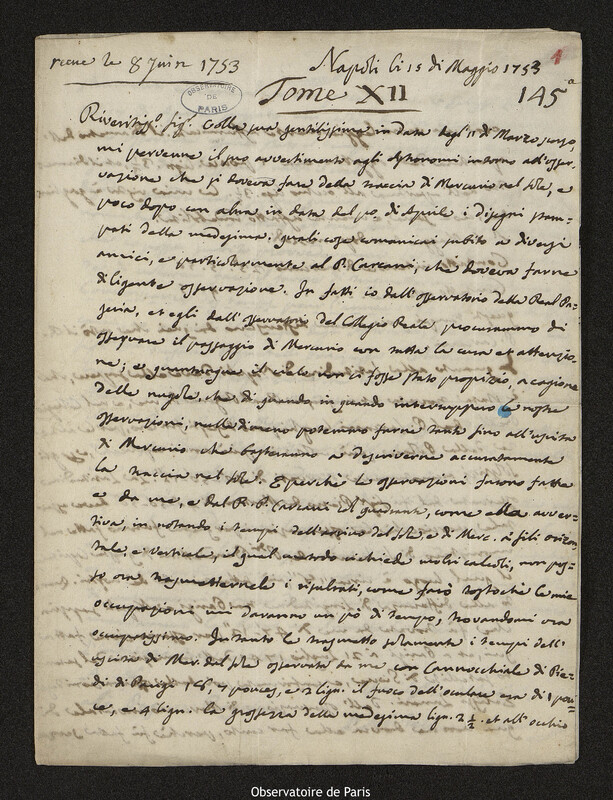 recue le 8 Juin 1753
Napoli li 15 di Maggio 1753
1
OBSERVATOIRE DE PARIS
Tome XII
145
Riveritiss.o Sig.r Colla sua gentilissima in data degl'11 di Marzo scorso
mi pervenne il suo avvertimento agli Astronomi intorno all'osser-
vazione che si doveva fare della traccia di Mercurio nel Sole, e
poco dopo con altra in data del po. di Aprile i disegni stam-
pati della medesima. quali cose comunicai subito a diversi
amici, e particolarmente al P. Carcani, che doveva farne
diligente osservazione. In fatti io dall'osservatorio della Real Pa-
geria, et egli dall'osservatorio del Collegio Reale procurammo di
osservare il passaggio di Mercurio con tutta la cura et attenzio-
ne; e quantunque il cielo non ci fosse stato propizio, a cagione
delle nugole, che di quando in quando interruppero le nostre
osservazioni, nulladimeno potemmo farne tante sino all'uscita
di Mercurio che basteranno a descriverne accuratamente
la traccia nel Sole. E perchè le osservazioni furono fatte
e da me, e dal P. P. Carcani col quadrante, come ella avver-
tiva, in notando i tempi dell'arrivo del Sole, e di Merc. a' fili orizon-
tale, e verticale, il qual metodo richiede molti calcoli, non pos-
so ora trasmetternele i risultati, come farò tostochè le mie
occupazioni mi daranno un pò di tempo, trovandomi ora
occupatissimo. Intanto le trasmetto solamente i tempi dell'
uscita di Mer. dal Sole osservata da me con Cannocchiale di Pie-
di di Parigi 16, 7 pouces, e 2 lign. il fuoco dell'oculare era di 1 pou-
ce, e 4 lign. la grossezza della medesima lign. 2 ½. et all'occhio
Observatoire de Paris